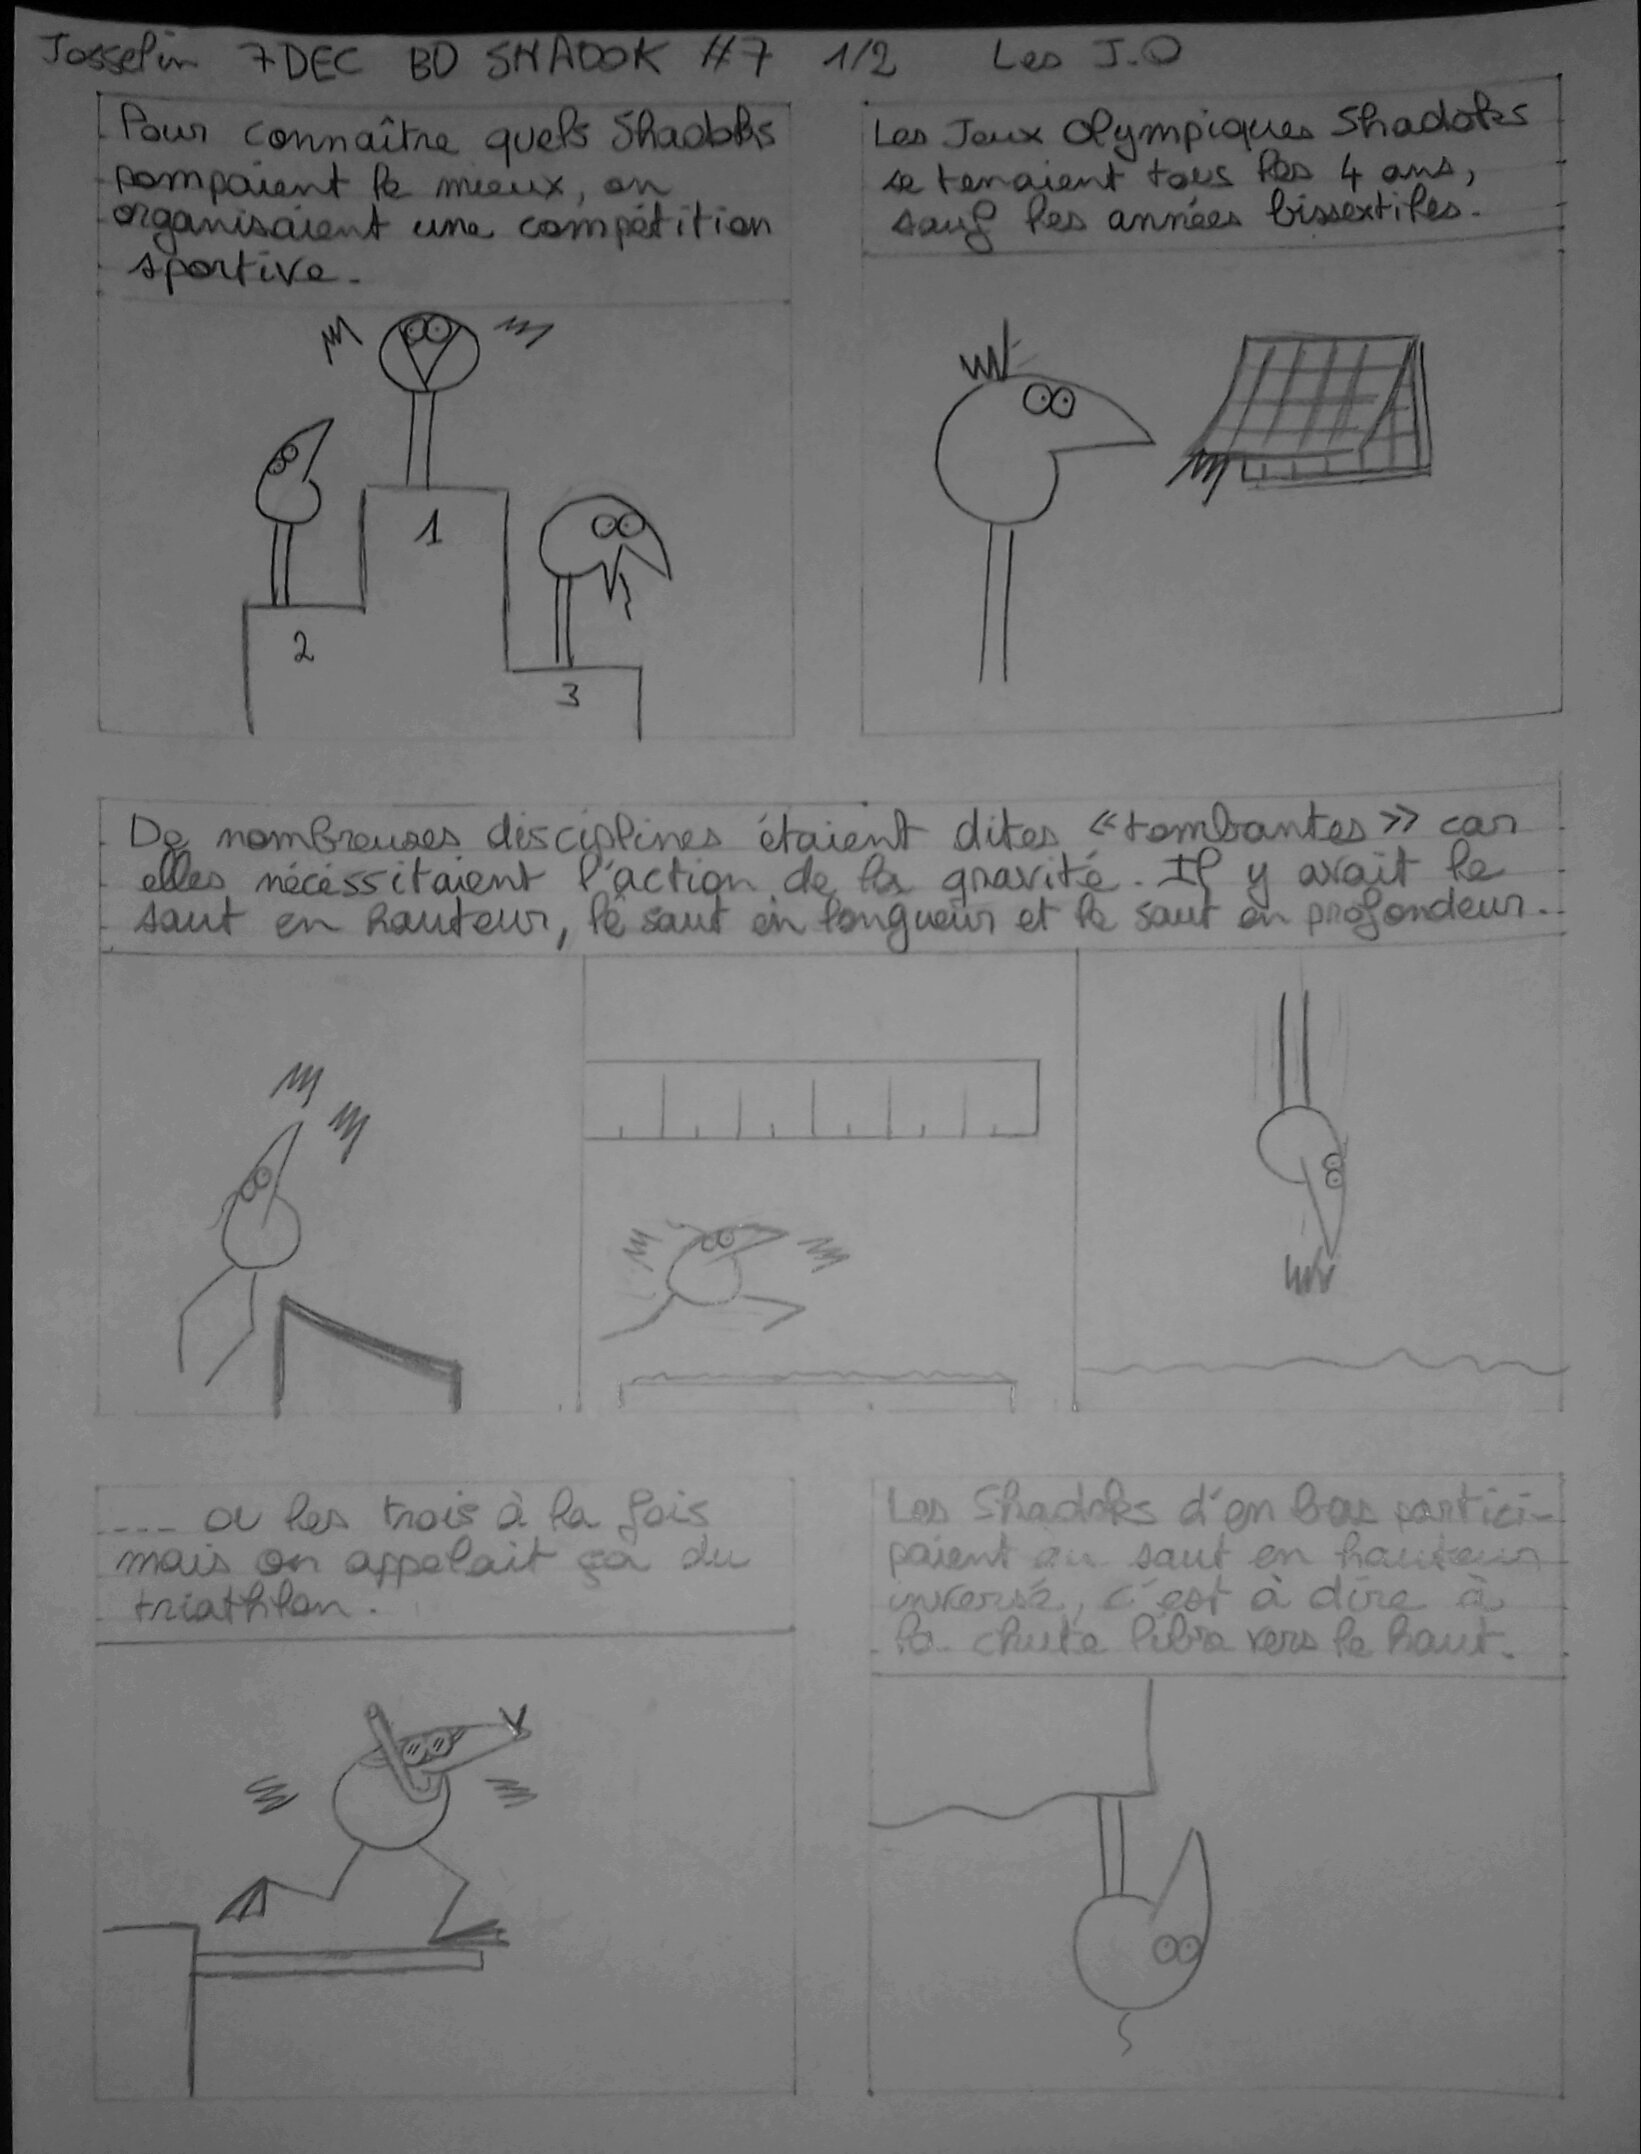 Josselin 7 DEC BD SHADOK #7 1/2 Les J.O
Pour connaître quels Shadoks
pompaient le mieux, on
organisaient une compétition
sportive.
Les Jeux Olympiques Shadoks
se tenaient tous les 4 ans,
sauf les années bissextiles.
1
2
3
De nombreuses disciplines étaient dites «tombantes» car
elles nécéssitaient l'action de la gravité. Il y avait le
saut en hauteur, le saut en longueur et le saut en profondeur.
.... ou les trois à la fois
mais on appelait ça du
triathlon.
Les Shadoks d'en bas partici-
paient au saut en hauteur
inversé, c'est à dire à
la chute libre vers le haut.